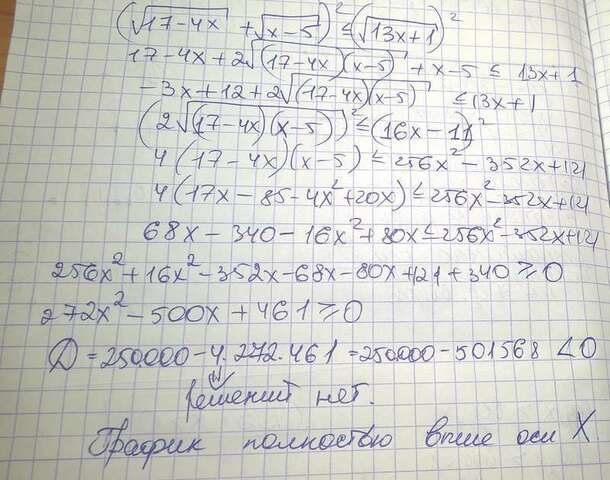 (√(17-4x) + √(x-5))² ≤ (√(13x+1))²
17-4x+2√((17-4x)(x-5)) + x-5 ≤ 13x+1
-3x+12+2√((17-4x)(x-5)) ≤ 13x+1
(2√((17-4x)(x-5)))² ≤ (16x-11)²
4(17-4x)(x-5) ≤ 256x² - 352x+121
4(17x-85-4x²+20x) ≤ 256x²-352x+121
68x-340-16x²+80x ≤ 256x²-352x+121
256x²+16x²-352x-68x-80x+121+340 ≥ 0
272x²-500x+461 ≥ 0
D = 250.000-4.272.461 = 250.000-501568 < 0
решений нет.
График полностью выше оси X